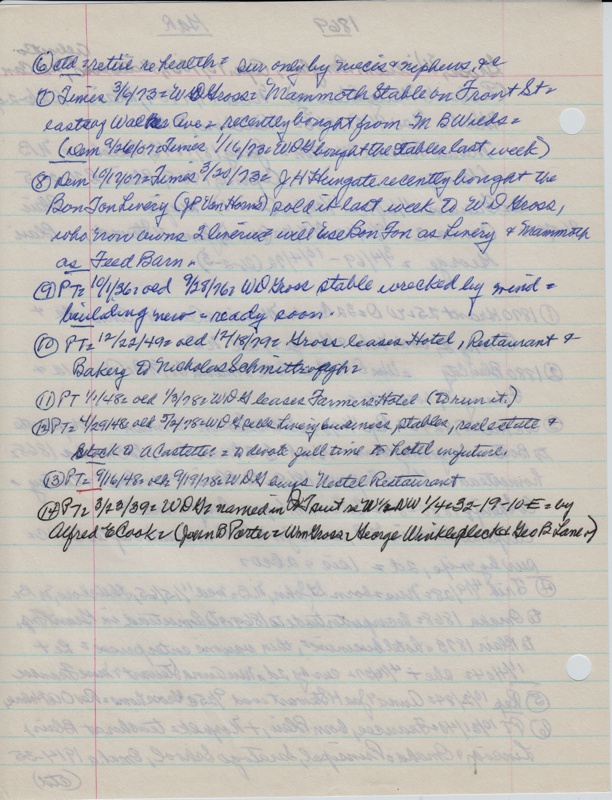 ⑥ ctd = retire re health = sur only by nieces & nephews, &c
⑦ Times 3/6/73 = W D Gross = Mammoth Stable on Front St =
east of Walker Ave = recently bought from M B Wilds =
(Dem 9/26/07 = Times 1/16/73 = WDG bought the stables last week)
⑧ Dem 10/17/07 = Times 3/20/73 = J H Hungate recently bought the
Bon Ton Livery (J P Van Horne) sold it last week to W D Gross,
who now owns 2 liveries = will use Bon Ton as Livery & Mammoth
as Feed Barn.
⑨ PT = 10/1/36 = old 9/28/76 = WD Gross stable wrecked by wind =
building new = ready soon.
⑩ PT = 12/22/49 = old 12/18/79 = Gross leases Hotel, Restaurant &
Bakery to Nicholas Schmitt =
⑪ PT 1/1/48 = old 1/3/78 = WDG leases Farmers Hotel (to run it.)
⑫ PT = 4/29/48 = old 5/2/78 = WDG sells Livery business, stables, real estate &
stock to A Castetter = to devote full time to hotel in future
⑬ PT = 9/16/48 = old 9/19/78 = WDG buys Nestel Restaurant
⑭ PT = 3/23/39 = WDG = named in suit re W½ NW 1/4 = 32-19-10-E = by
Alfred E Cook = (John B Porter = Wm Gross = George Winkleplecks Geo B Lane)